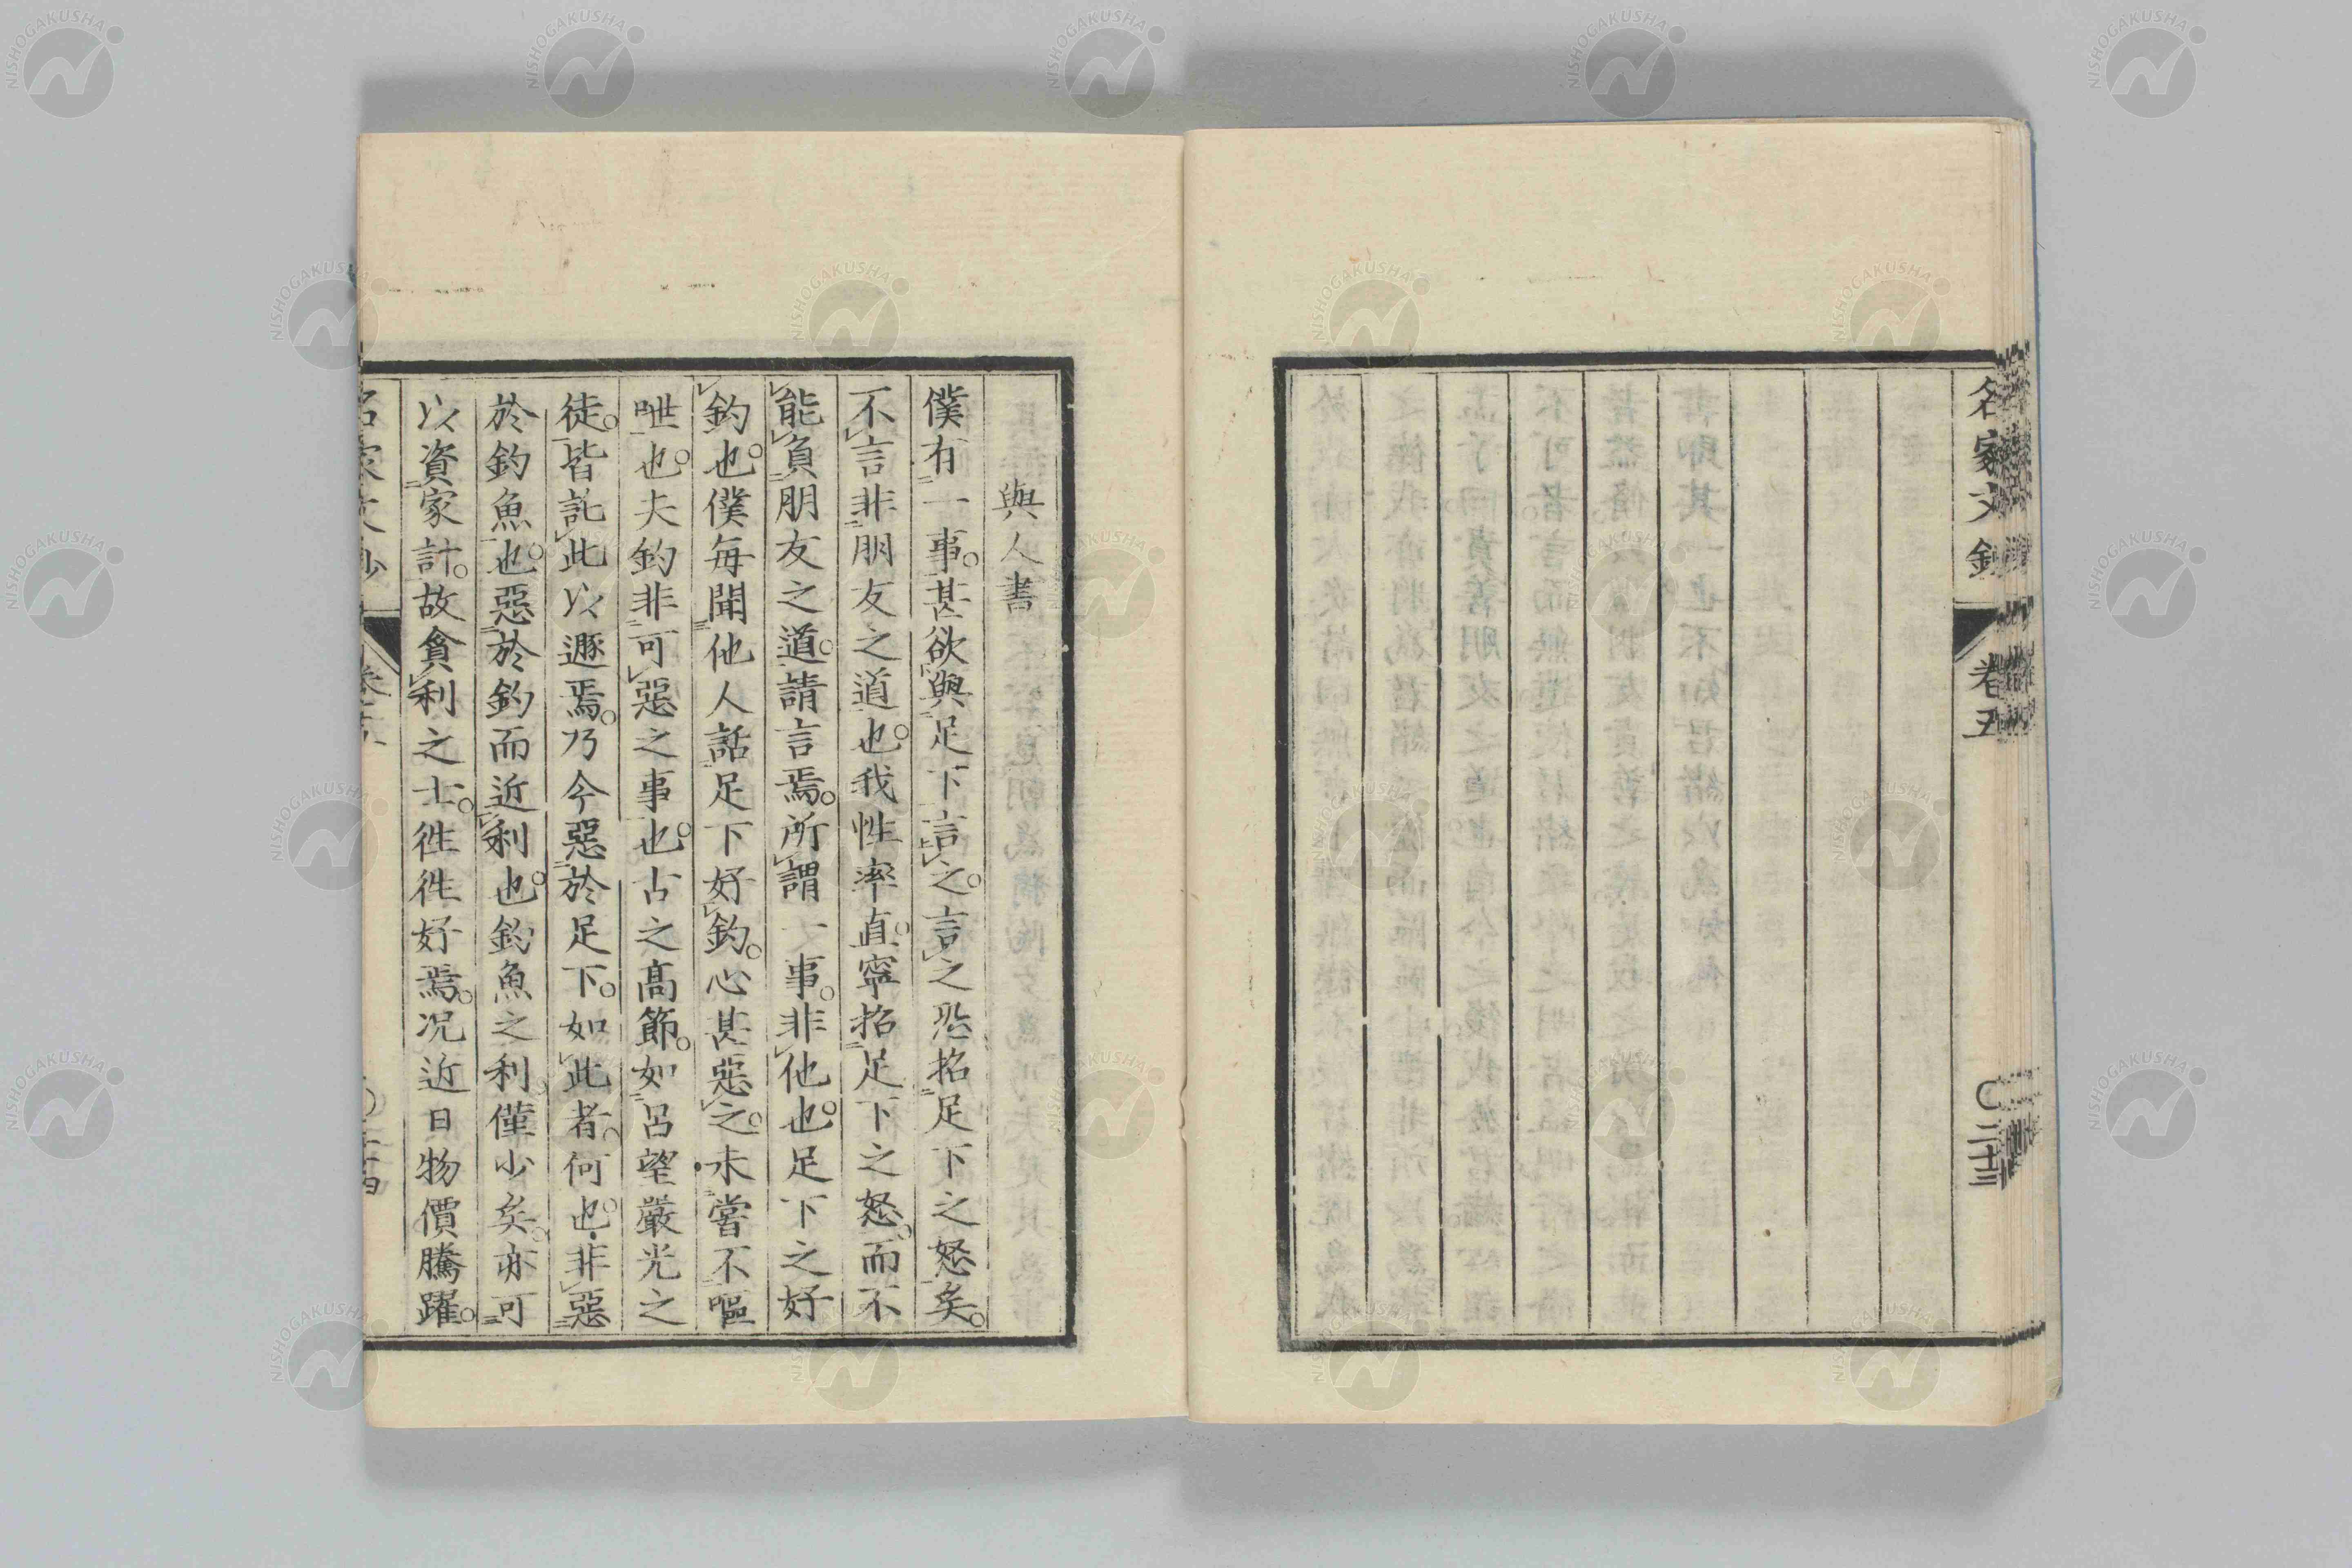 名家文鈔 卷五 〇二十三
與人書
僕有一事。甚欲與足下言之。言之恐招足下之怒矣。
不言非朋友之道也。我性率直。寧招足下之怒。而不
能負朋友之道。請言焉。所謂一事。非他也。足下之好
釣也。僕每聞他人話足下好釣。心甚惡之。未嘗不嘔
唯也。夫釣非可惡之事也。古之高節。如呂望嚴光之
徒。皆託此以遯焉。乃今惡於足下。如此者。何也。非惡
於釣魚也。惡於釣而近利也。釣魚之利僅少矣。亦可
以資家計。故貪利之士。徃徃好焉。况近日物價騰躍。
NISHOGAKUSHA